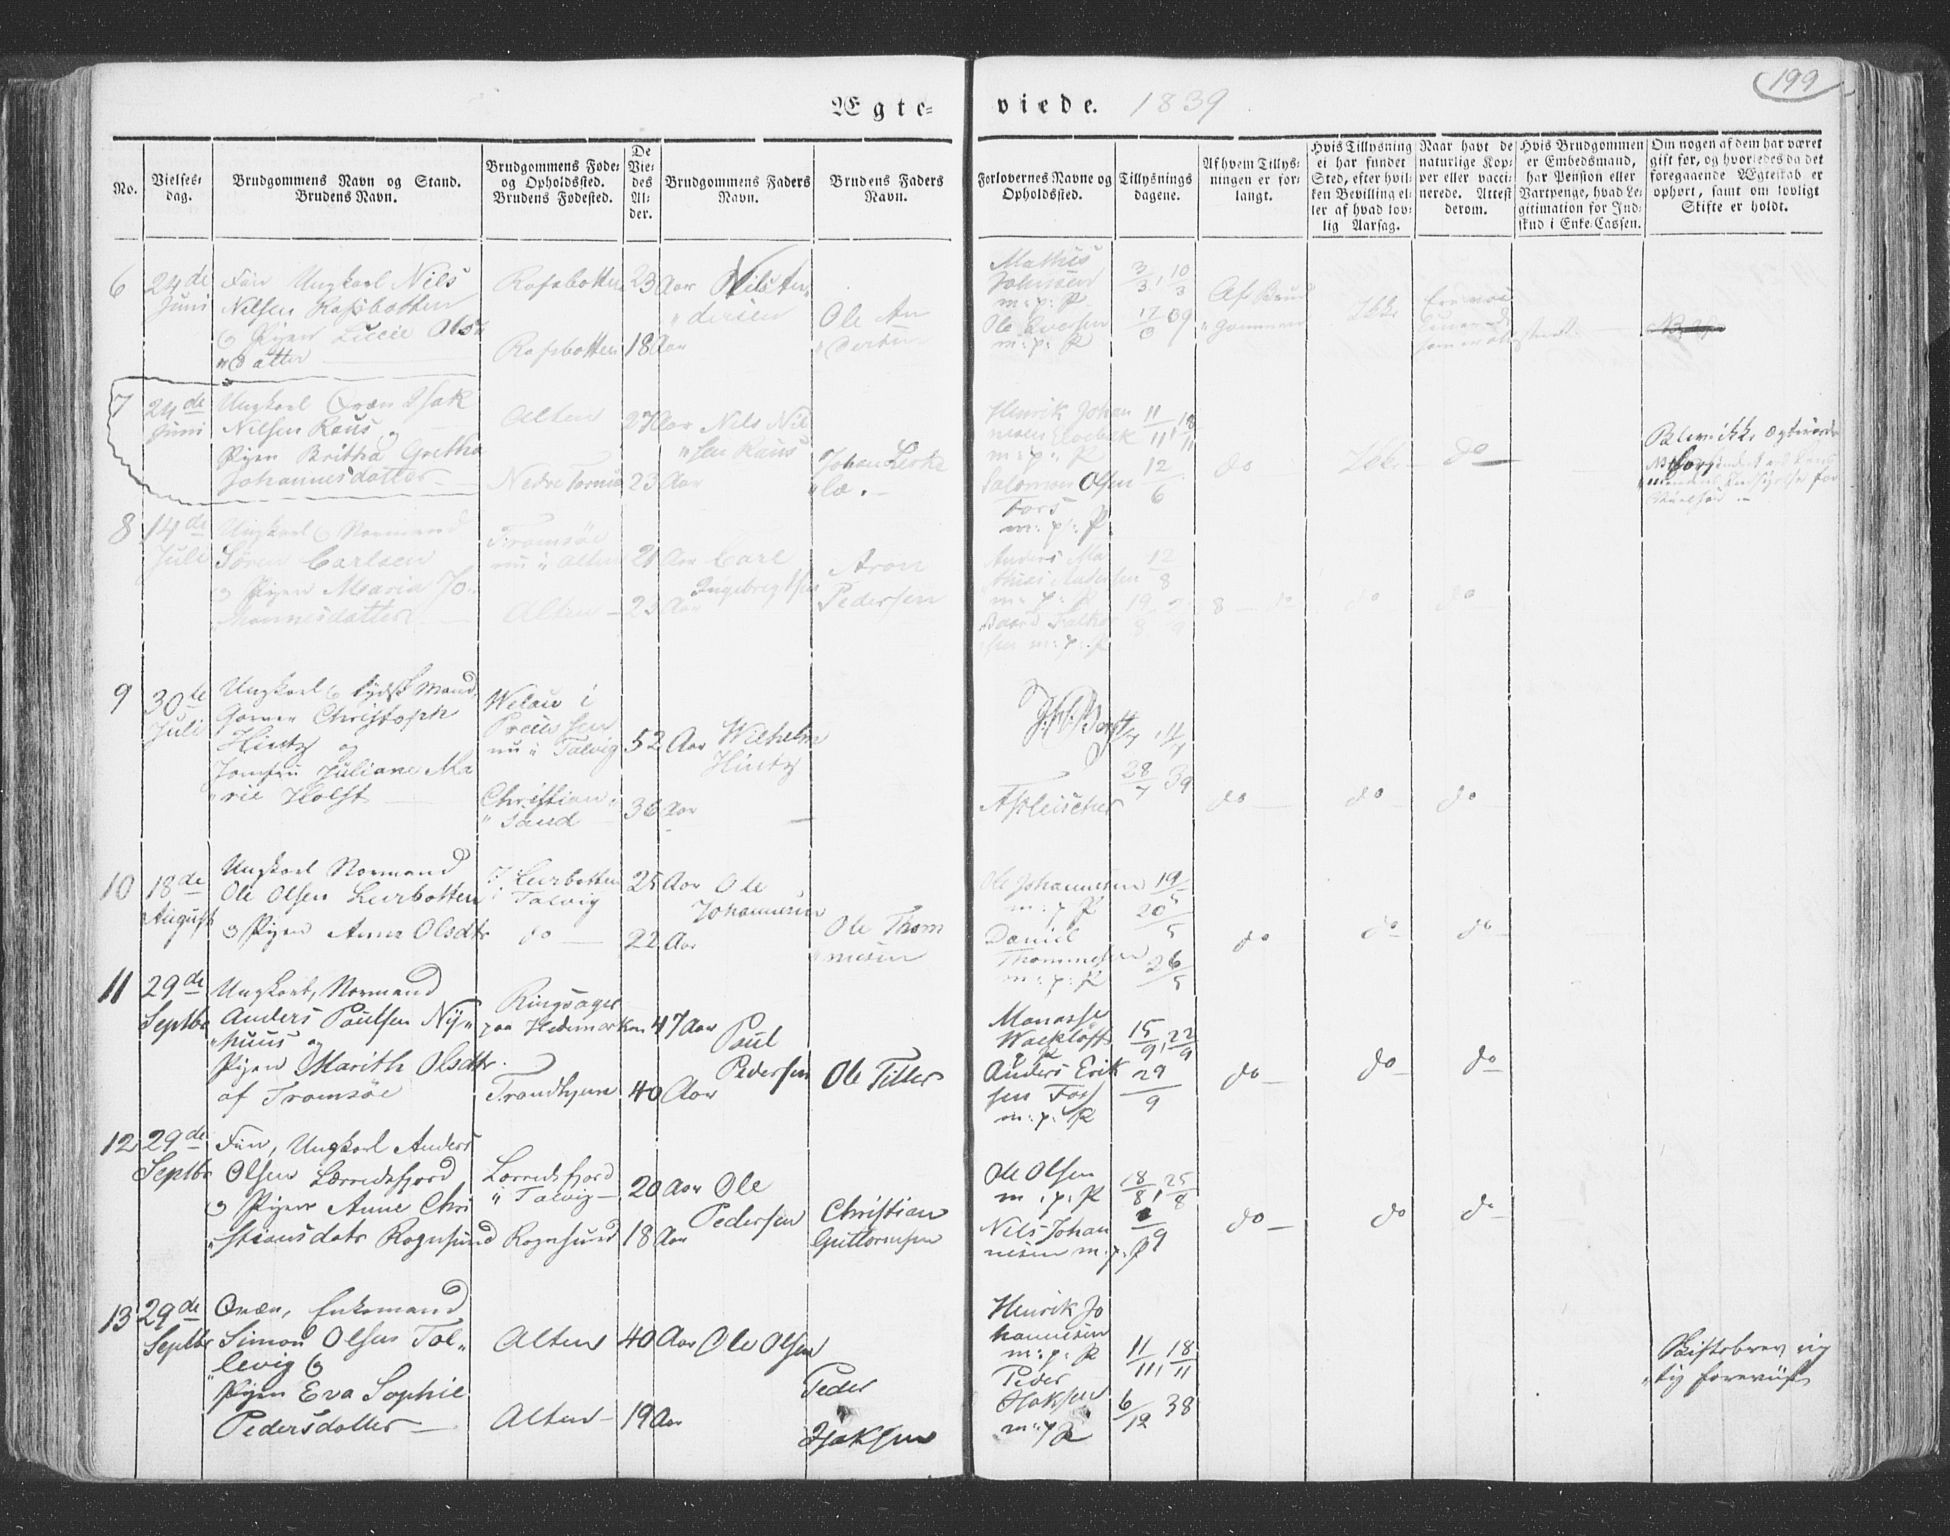 199
Ægte- viede. 1839
No.
Vielses-
dag.
Brudgommens Navn og Stand.
Brudens Navn.
Brudgommens Føde-
og Opholdssted.
Brudens Fødested.
De
Vie-
des
Al-
der.
Brudgommens Faders
Navn.
Brudens Faders
Navn.
Forlovernes Navne og
Opholdssted.
Tillysnings
dagene.
Af hvem Tillys-
ningen er for-
langt.
Hvis Tillysning
ei har fundet
Sted, efter hvil-
ken Bevilling el-
ler af hvad lov-
lig Aarsag.
Naar havt de
naturlige Kop-
per eller vacci-
nerede. Attest
derom.
Hvis Brudgommen
er Embedsmand,
har Pension eller
Vartpenge, hvad Le-
gitimation for Ind-
skud i Enke-Cassen.
Om nogen af dem har været
gift før, og hvorledes da det
foregaaende Ægteskab er
ophørt, samt om lovligt
Skifte er holdt.
6
24de
Juni
Fin Ungkarl Nils
Nilsen Rafsbotten
og Pigen Lucie Ols
datter
Rafsbotten
Rafsbotten
23 Aar
18 Aar
Nils An
dersen
Ole An
dersen
Mathis
Johnsen
m: p: P
Ole Iversen
m: p: P
3/3, 10/3
17/3 39
Af Brud
gommen
Ikke
7
24de
Juni
Ungkarl Qvæn Isak
Nilsen Raus og
Pigen Britha Gretha
Johannesdatter
Alten
Nedre Tornio
27 Aar
23 Aar
Nils Nil
sen Raus
Johan Lerke
læ.
Henrik Johan
nesen Elvebak
m: p: P
Salomon Olsen
Fors
m: p: P
11/11, 18/11
12/6
do
Ikke
do
Blev ikke ægteviede
8
14de
Juli
Ungkarl og Normand
Søren Carlsen
og Pigen Maria Jo
hannesdatter
Tromsøe
nu i Alten
Alten
21 Aar
23 Aar
Carl
Ingebrigtsen
Aron
Pedersen
Anders Ma
thias Andersen
m: p: P
m: p: P
12/8
19/8
do
do
do
9
30te
Juli
Ungkarl og tydsk Mand
Garver Christoph
Hintz og
Jomfru Juliane Ma
rie Holst
Welau i
Preusen
nu i Talvig
Christian
sand
52 Aar
36 Aar
Wilhelm
Hintz
A Fleischer
28/7 39
do
do
do
10
18de
August
Ungkarl Normand
Ole Olsen Lerbotten
og Pigen Anne Olsdtr
Lerbotten
Talvig
do
25 Aar
22 Aar
Ole
Johannesen
Ole Thom
mesen
Ole Johannesen
m: p: P
Daniel
Thommesen
m: p: P
19/5
20/5
26/5
do
do
do
11
29de
Septbr
Ungkarl, Normand
Anders Paulsen Ny
huus og
Pigen Marith Olsdtr
af Tromsøe
Ringsager
paa Hedemarken
Trondhjem
47 Aar
40 Aar
Paul
Pedersen
Ole Tiller
Manasse
Wackløft
Anders Erik
sen Fors
m: p: P
15/9, 22/9
29/9
do
do
do
12
29de
Septbr
Fin, Ungkarl Anders
Olsen Lærredsfjord
og Pigen Anne Chri
stiansdatr Rognsund
Lerredsfjord
i Talvig
Rognsund
20 Aar
18 Aar
Ole
Pedersen
Christian
Guttormsen
Ole Olsen
m: p: P
Nils Johan
nesen m. p. P
18/8, 25/8
do
do
do
13
29de
Septbr
Qvæn, Enkemand
Simon Olsen Tol
levig og
Pigen Eva Sophie
Pedersdatter
Alten
Alten
40 Aar
19 Aar
Ole Olsen
Peder
Isaksen
Henrik Jo
hannesen
m: p: P
Peder
Isaksen
m: p P
11/11, 18/11
6/12 38
Skiftebrev rig
tig foreviist